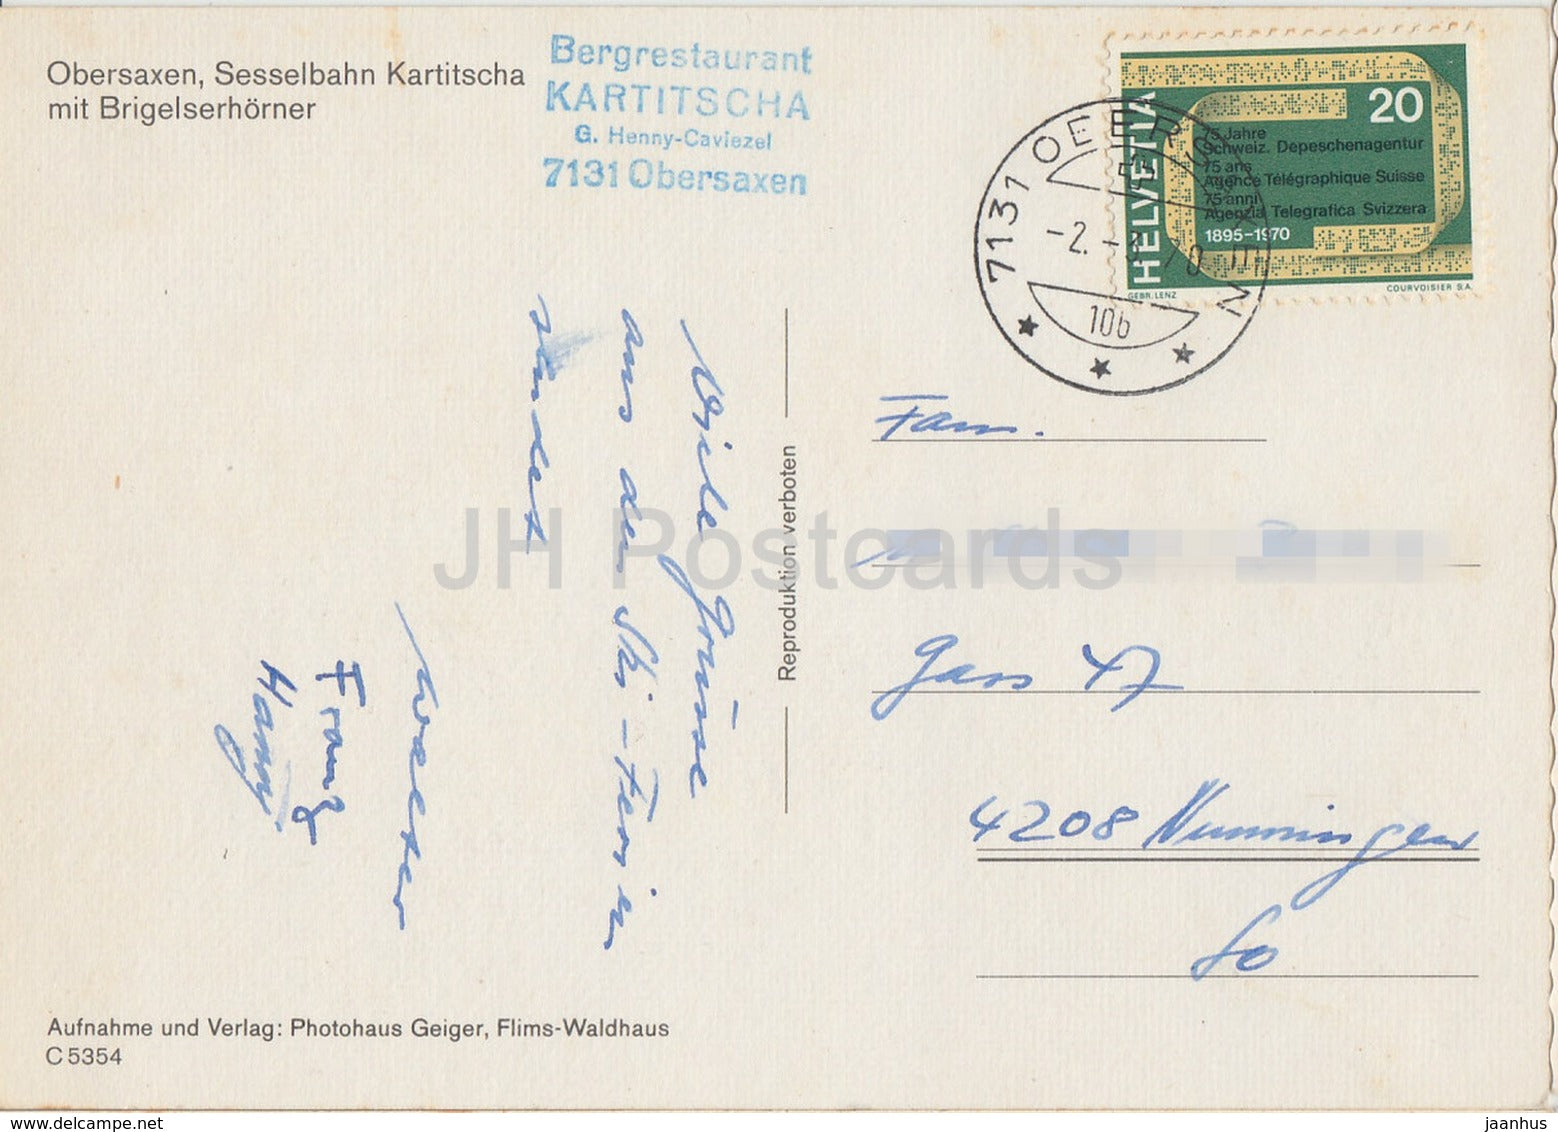 Obersaxen, Sesselbahn Kartitscha
mit Brigelserhörner
Bergrestaurant
KARTITSCHA
G. Henny-Caviezel
7131 Obersaxen
HELVETIA
20
75 Jahre
Schweiz. Depeschenagentur
75 ans
Agence Télégraphique Suisse
75 anni
Agenzia Telegrafica Svizzera
1895-1970
GEBR. LENZ
COURVOISIER S.A.
7131 OBERSAXEN
-2.-3.70
10b
Viele Grüsse
aus den Ski-Ferien
sendet
Walter
Franz
Hanny
Reproduktion verboten
Fam.
Gass 47
4208 Nunningen
So
JH Postcards
Aufnahme und Verlag: Photohaus Geiger, Flims-Waldhaus
C 5354
www.delcampe.net
jaanhus